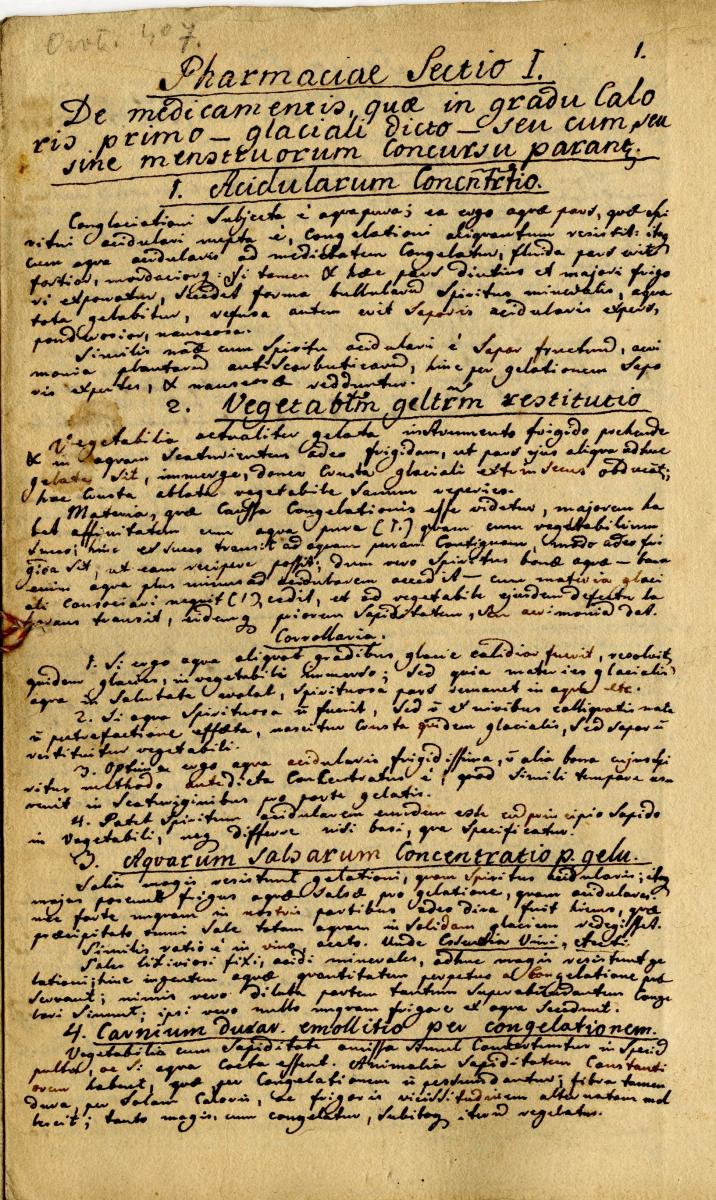 Oxvt. 407.
1.
Pharmaciae Sectio I.
De medicamentis, quæ in gradu Calo
ris primo – glaciali dicto – seu cum, seu
sine menstruorum Concursu parant.
1. Acidularum Concentrtio.
Conglaciationi Subjecta ē aqua pura; ea ergo aquæ pars, quæ spi
ritui acidulari nupta ē, Congelationi aliquantum resistit: itaq
cum aqua acidularis ad medietatem Congelatur, fluida pars erit
fortior, mordaciorq: Si tamen & hæc pars diutius et majori frigo
ri exponatur, secedet forma bullularum Spiritus mineralis, aqua
tota gelabitur, refusa autem erit Saporis acidularis expers,
ponderosior, nauseosa.
Similis cum Spiritu acidulari ē Sapor fructuum, acri
monia plantarum antiscorbuticarum, hinc per gelationem Sapo
ris expertes, & nauseosæ redduntur.
2. Vegetabilm geltrm restitutio
Vegetabilia actualiter gelata instrumento frigido prehende
& in aquam Scaturientem adeo frigidam, ut pars ejus aliqua adhuc
gelata sit, immerge, donec Crusta glaciali extrinsecus obducati;
hac Crusta ablata vegetabile Sanum reperies.
Materia, quæ Caussa Congelationis esse videtur, majorem ha
bet affinitatem cum aqua pura (1.) quam cum vegetabilium
Succo; hinc ex succo transit ad aquam puram Contiguam, modo adeo fri
gida sit, ut eam recipere possit; dum vero Spiritus bonæ aquæ – bona
enim aqua plus minus ad acidularem accedit – cum materia glaci
ali Consociari nequit (1.), cedit, et ad vegetabile ejusdem defectu la
borans transit, eidemq priorem Sapiditatem, seu acrimoniam dat.
Corrollaria.
1. Si ergo aqua aliquot gradibus glacie calidior fuerit, resolvit
quidem glaciem, in vegetabili immerso; Sed quia materies glacialis
aqua in evolat, Spirituosa pars remanet in aqua etc.
2. Si aqua Spirituosa ū fuerit, Sed ū ex nivibus colliquatis nata
ū putrefactione effæta, nascitur Crusta quidem glacialis, Sed Sapor ū
restituitur vegetabili.
3. Optima ergo aqua acidularis frigidissima, ū alia bona cujus spi
ritus methodo antedicta Concentratus ē, quod Simili tempore eve
nit in Scaturiginibus pro parte gelatis.
4. Patet Spiritum acidularem eundem esse cum principio Sapido
in Vegetabili, neq differre nisi basi, quæ Specificatur.
3. Aquarum Salsarum Concentratio p. gelu.
Salia magis resistunt gelationi, quam Spiritus acidularis; itaq
majus poscunt frigus aquæ Salsæ pro gelatione, quam acidulares
nec forte unquam in nostris partibus adeo dira fuit hiems, quæ
præcipitato omni Sale totam aquam in Solidam glaciem redegisset.
Similis ratio ē in vino, aceto. Unde Essentia Vini, Aceti.
Sales lixiviosi fixi, acidi minerales, adhuc magis resistunt ge
lationi; hinc ingentem aquæ quantitatem perpetuo a Congelatione præ
servant; nimis vero diluta partem tantum Superabundantem Conge
lari Sinunt; ipsi vero nullo unquam frigore ex aqua Secedunt.
4. Carnium durar. emollitio per congelationem.
Vegetabilia cum Sapiditate amissa Simul Convertuntur in Speciem
pultis, ac Si aqua Cocta essent. Animalia Sapiditatem Constanti
orem habent, quæ per Congelationem ū pessundantur; fibra tamen
dura, per Solam Caloris, ac frigoris vicissitudinem alternatam mol
lescit; tanto magis, cum congelatur, Subitoq iterum regelatur.